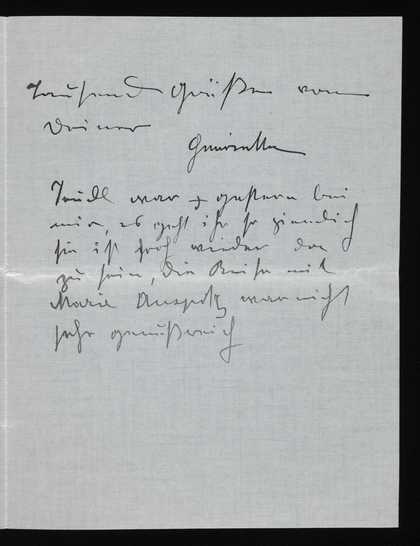 Tausend Grüße von
Deiner
Henriette
Trudl war gestern bei
mir, es geht ihr so ziemlich
sie ist froh wieder da
zu sein, die Reise mit
Marie Auspitz war nicht
sehr genußreich